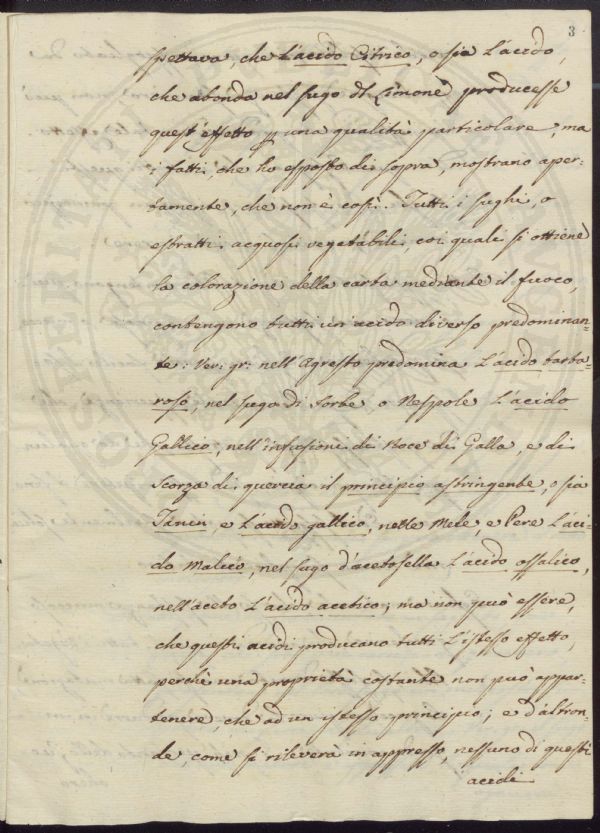 3
spettava, che L'acido Citrico, o sia L'acido,
che abonda nel sugo di Limone producesse
quest'effetto p una qualità particolare, ma
i fatti, che ho esposto di sopra, mostrano aper-
tamente, che non è così. Tutti i sughi, o
estratti acquosi vegetabili, coi quali si ottiene
la colorazione della carta mediante il fuoco,
contengono tutti un acido diverso predominan-
te: Ver: gr: nell'Agresto predomina L'acido tarta-
roso, nel sugo di Sorbe o Nespole L'acido
Gallico, nell'infusioni di Noce di Galla, e di
Scorza di quercia il principio astringente, o sia
Tanin, e L'acido gallico, nelle Mele, e Pere L'aci-
do Malico, nel sugo d'acetosella L'acido ossalico,
nell'aceto L'acido acetico; ma non può essere,
che questi acidi producano tutti L'istesso effetto,
perchè una proprietà costante non può appar-
tenere, che ad un istesso principio; e d'altron-
de, come si rileverà in appresso, nessuno di questi
acidi